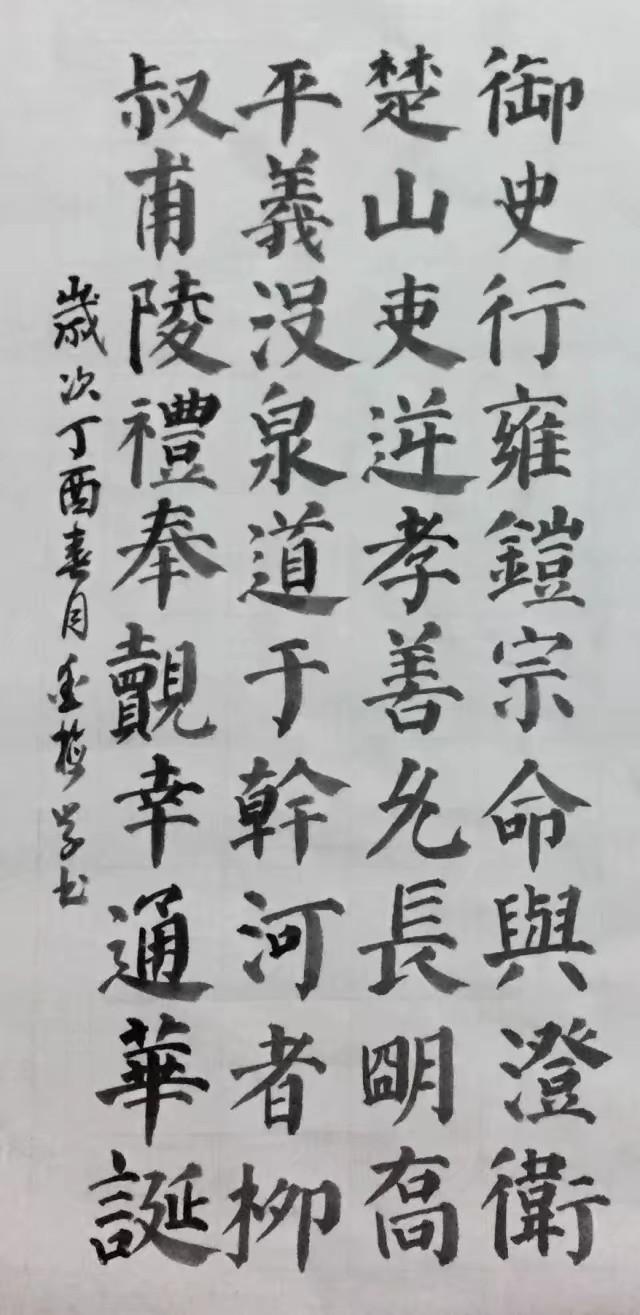 御史行雍鎧宗命與澄衛
楚山吏逆孝善允長明喬
平義没泉道于幹河者柳
叔甫陵禮奉覿幸通華誕
歲次丁酉春月 書